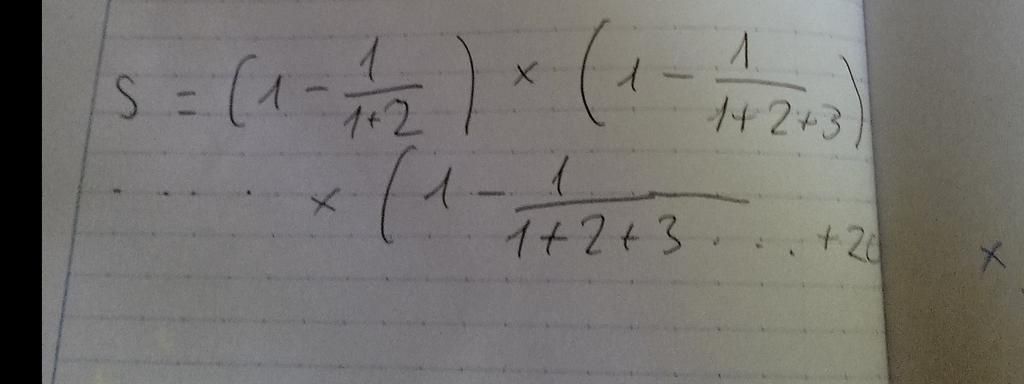 S = (1 - 1/(1+2)) × (1 - 1/(1+2+3))
. . . . × (1 - 1/(1+2+3 . . . +2
×